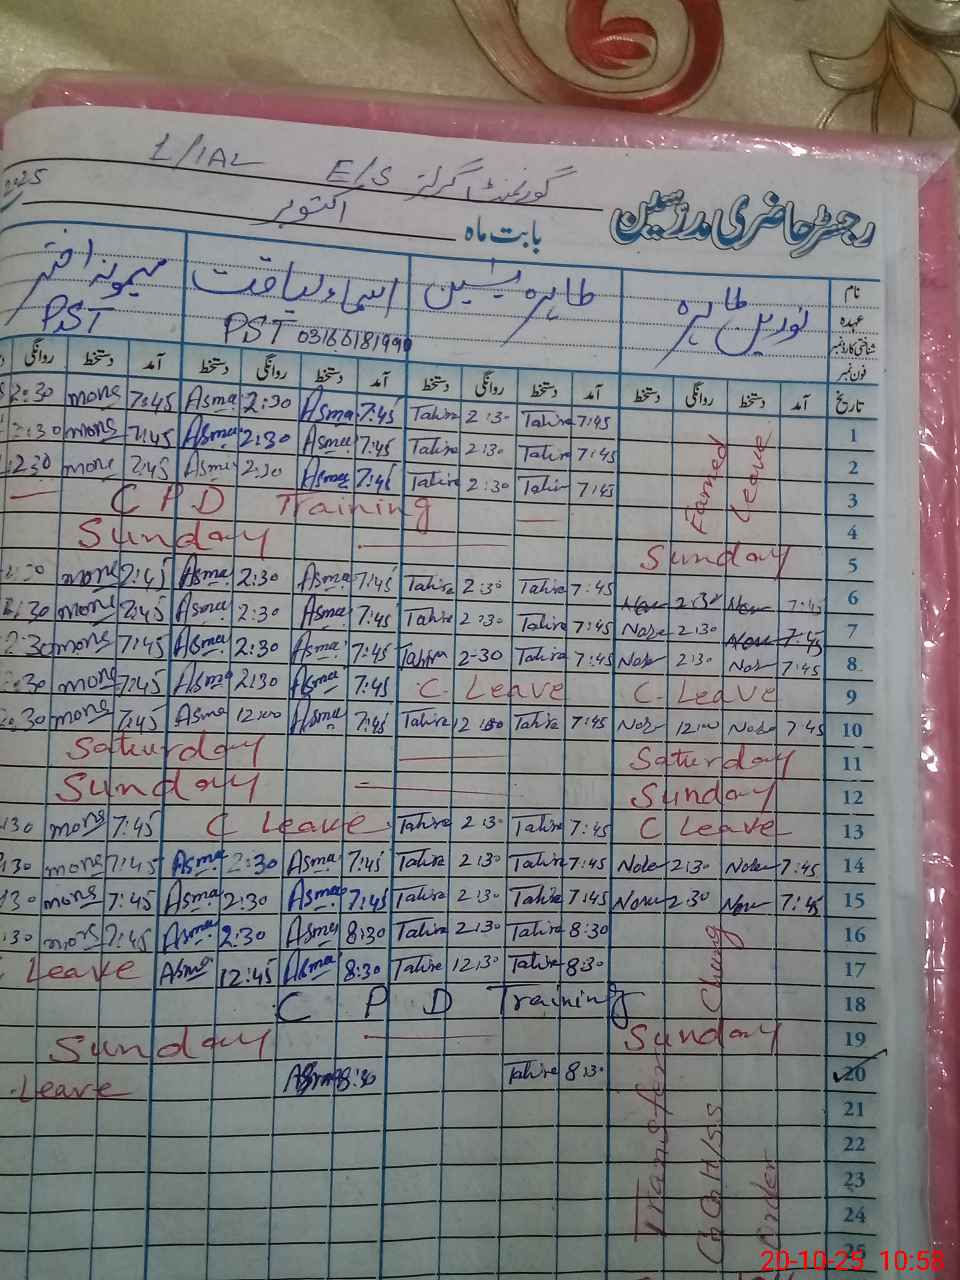 گورنمنٹ گرلز E/S 1/1AL
رجسٹر حاضری مدرسین
بابت ماہ اکتوبر 2025
نام نورین طاہرہ طاہرہ یٰسین اسماء لیاقت میمونہ اختر
عہدہ PST PST
شناختی کارڈ نمبر
فون نمبر 03166181990
تاریخ آمد دستخط روانگی دستخط آمد دستخط روانگی دستخط آمد دستخط روانگی دستخط آمد دستخط روانگی
1 7:45 Tahira 2:30 Tahira 7:45 Asma 2:30 Asma 7:45 mona 2:30
2 7:45 Tahira 2:30 Tahira 7:45 Asma 2:30 Asma 7:45 mona 2:30
3 7:45 Tahira 2:30 Tahira 7:45 Asma 2:30 Asma 7:45 mona 2:30
Earned Leave
4 CPD Training
5 Sunday Sunday
6 7:45 2:30 7:45 Tahira 2:30 Tahira 7:45 Asma 2:30 Asma 7:45 mona 2:30
7 7:45 2:30 7:45 Tahira 2:30 Tahira 7:45 Asma 2:30 Asma 7:45 mona 2:30
8 7:45 2:30 7:45 Tahira 2-30 Tahira 7:45 Asma 2:30 Asma 7:45 mona 2:30
9 C. Leave C. Leave 7:45 Asma 2:30 Asma 7:45 mona 2:30
10 7:45 12:00 7:45 Tahira 12:00 Tahira 7:45 Asma 12:00 Asma 7:45 mona
11 Saturday Saturday
12 Sunday Sunday
13 C Leave 7:45 Tahira 2:30 Tahira C Leave 7:45 mona :30
14 7:45 2:30 7:45 Tahira 2:30 Tahira 7:45 Asma 2:30 Asma 7:45 mona :30
15 7:45 2:30 7:45 Tahira 2:30 Tahira 7:45 Asma 2:30 Asma 7:45 mona :30
16 8:30 Tahira 2:30 Tahira 8:30 Asma 2:30 Asma 7:45 mona :30
17 8:30 Tahira 12:30 Tahira 8:30 Asma 12:45 Asma Leave
18 CPD Training
19 Sunday Sunday
20 8:30 Tahira 8:30 Asma Leave
21
22
23
24
25
Transfer
Chung
G.G.H/S.S
Order
20-10-25 10:58